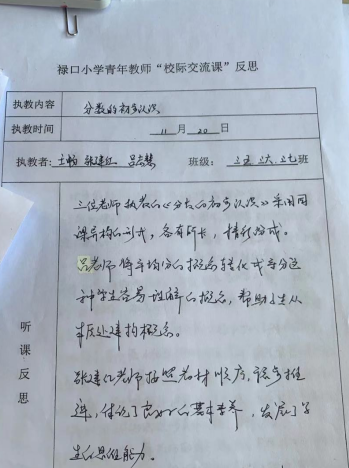 禄口小学青年教师“校际交流课”反思
执教内容 分数的初步认识
执教时间 11月20日
执教者: 张建红 吕志慧 班级: 三五、六、七班
三位老师执教的《分数的初步认识》采用同
课异构的形式，各有所长，精彩纷呈。
吕老师将平均分的概念转化成等分这
种学生容易理解的概念，帮助学生从
本质处建构概念。
张建红老师按照教材顺序，逐步推
进，体现了良好的基本素养，发展了学
生的思维能力。
听课反思